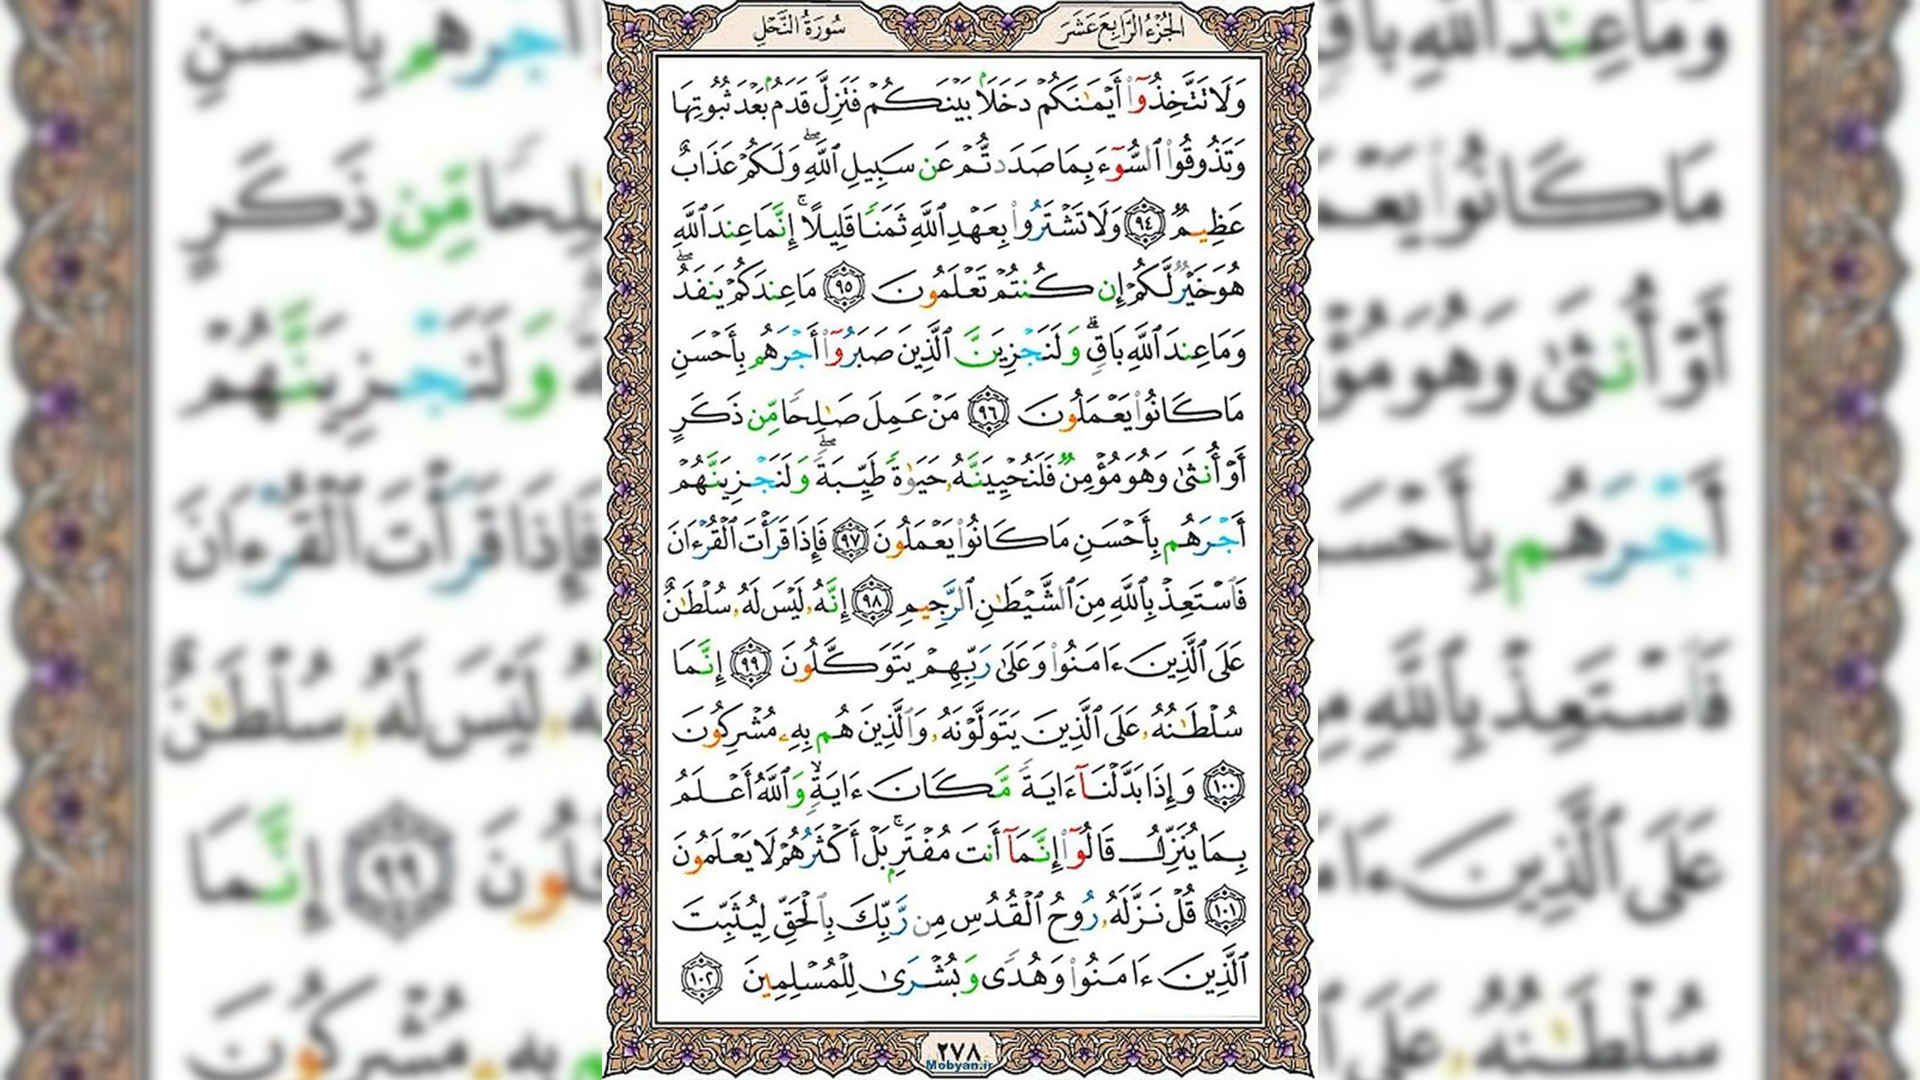 الجزء الرابع عشر
سورة النحل
وَلَا تَتَّخِذُوٓا۟ أَيْمَـٰنَكُمْ دَخَلًۢا بَيْنَكُمْ فَتَزِلَّ قَدَمٌۢ بَعْدَ ثُبُوتِهَا
وَتَذُوقُوا۟ ٱلسُّوٓءَ بِمَا صَدَدتُّمْ عَن سَبِيلِ ٱللَّهِ ۖ وَلَكُمْ عَذَابٌ
عَظِيمٌ ٩٤ وَلَا تَشْتَرُوا۟ بِعَهْدِ ٱللَّهِ ثَمَنًا قَلِيلًا ۚ إِنَّمَا عِندَ ٱللَّهِ
هُوَ خَيْرٌ لَّكُمْ إِن كُنتُمْ تَعْلَمُونَ ٩٥ مَا عِندَكُمْ يَنفَدُ ۖ
وَمَا عِندَ ٱللَّهِ بَاقٍ ۗ وَلَنَجْزِيَنَّ ٱلَّذِينَ صَبَرُوٓا۟ أَجْرَهُم بِأَحْسَنِ
مَا كَانُوا۟ يَعْمَلُونَ ٩٦ مَنْ عَمِلَ صَـٰلِحًا مِّن ذَكَرٍ
أَوْ أُنثَىٰ وَهُوَ مُؤْمِنٌ فَلَنُحْيِيَنَّهُۥ حَيَوٰةً طَيِّبَةً ۖ وَلَنَجْزِيَنَّهُمْ
أَجْرَهُم بِأَحْسَنِ مَا كَانُوا۟ يَعْمَلُونَ ٩٧ فَإِذَا قَرَأْتَ ٱلْقُرْءَانَ
فَٱسْتَعِذْ بِٱللَّهِ مِنَ ٱلشَّيْطَـٰنِ ٱلرَّجِيمِ ٩٨ إِنَّهُۥ لَيْسَ لَهُۥ سُلْطَـٰنٌ
عَلَى ٱلَّذِينَ ءَامَنُوا۟ وَعَلَىٰ رَبِّهِمْ يَتَوَكَّلُونَ ٩٩ إِنَّمَا
سُلْطَـٰنُهُۥ عَلَى ٱلَّذِينَ يَتَوَلَّوْنَهُۥ وَٱلَّذِينَ هُم بِهِۦ مُشْرِكُونَ
١٠٠ وَإِذَا بَدَّلْنَآ ءَايَةً مَّكَانَ ءَايَةٍ ۙ وَٱللَّهُ أَعْلَمُ
بِمَا يُنَزِّلُ قَالُوٓا۟ إِنَّمَآ أَنتَ مُفْتَرٍۭ ۚ بَلْ أَكْثَرُهُمْ لَا يَعْلَمُونَ
١٠١ قُلْ نَزَّلَهُۥ رُوحُ ٱلْقُدُسِ مِن رَّبِّكَ بِٱلْحَقِّ لِيُثَبِّتَ
ٱلَّذِينَ ءَامَنُوا۟ وَهُدًى وَبُشْرَىٰ لِلْمُسْلِمِينَ ١٠٢
٢٧٨
Mobyan.ir